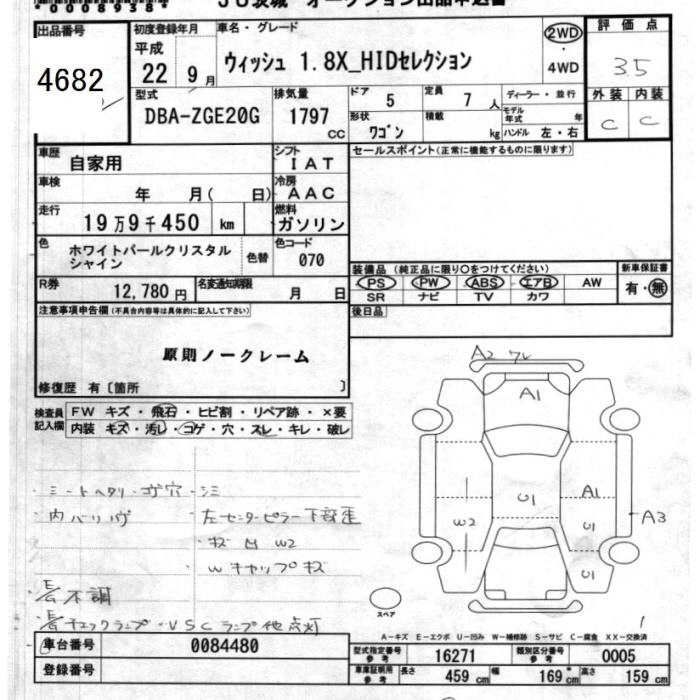 00008938
JU茨城 オークション出品申込書
出品番号
4682
初度登録年月
平成
22 9月
車名・グレード
ウィッシュ 1.8X_HIDセレクション
2WD
4WD
評価点
3.5
外装 内装
C C
型式
DBA-ZGE20G
排気量
1797
CC
ドア
5
定員
7 人
形状
ワゴン
積載
kg
ディーラー・並行
モデル年式 年
ハンドル 左・右
車歴
自家用
シフト
IAT
セールスポイント(正常に機能するものに限ります)
車検
年 月( 日)
冷房
AAC
走行
19万9千450 km
燃料
ガソリン
色
ホワイトパールクリスタル
シャイン
色替
色コード
070
装備品 (純正品に限り○をつけてください)
新車保証書
PS PW ABS エアB AW
SR ナビ TV カワ
有・無
R券
12,780円
名変通知期限
月 日
後日品
注意事項申告欄(不具合内容等は具体的に記入して下さい)
原則ノークレーム
修復歴 有〔箇所 〕
検査員
記入欄
FW キズ・飛石・ヒビ割・リペア跡・×要
内装 キズ・汚レ・コゲ・穴・スレ・キレ・破レ
A2 ワレ
A1
U1
A1
U1
U1
W2
A3
・シートヘタリ・コゲ穴・シミ
・内ハリハゲ
・左センターピラー下部歪
キズ凹 W2
・Wキャップキズ
不調
チェックランプ・VSCランプ他点灯
スペア
1
A-キズ E-エクボ U-凹み W-補修跡 S-サビ C-腐食 XX-交換済
車台番号
0084480
登録番号
型式指定番号
参考
16271
類別区分番号
参考
0005
車庫証明用
参考
長さ 459 cm
幅 169 cm
高さ 159 cm